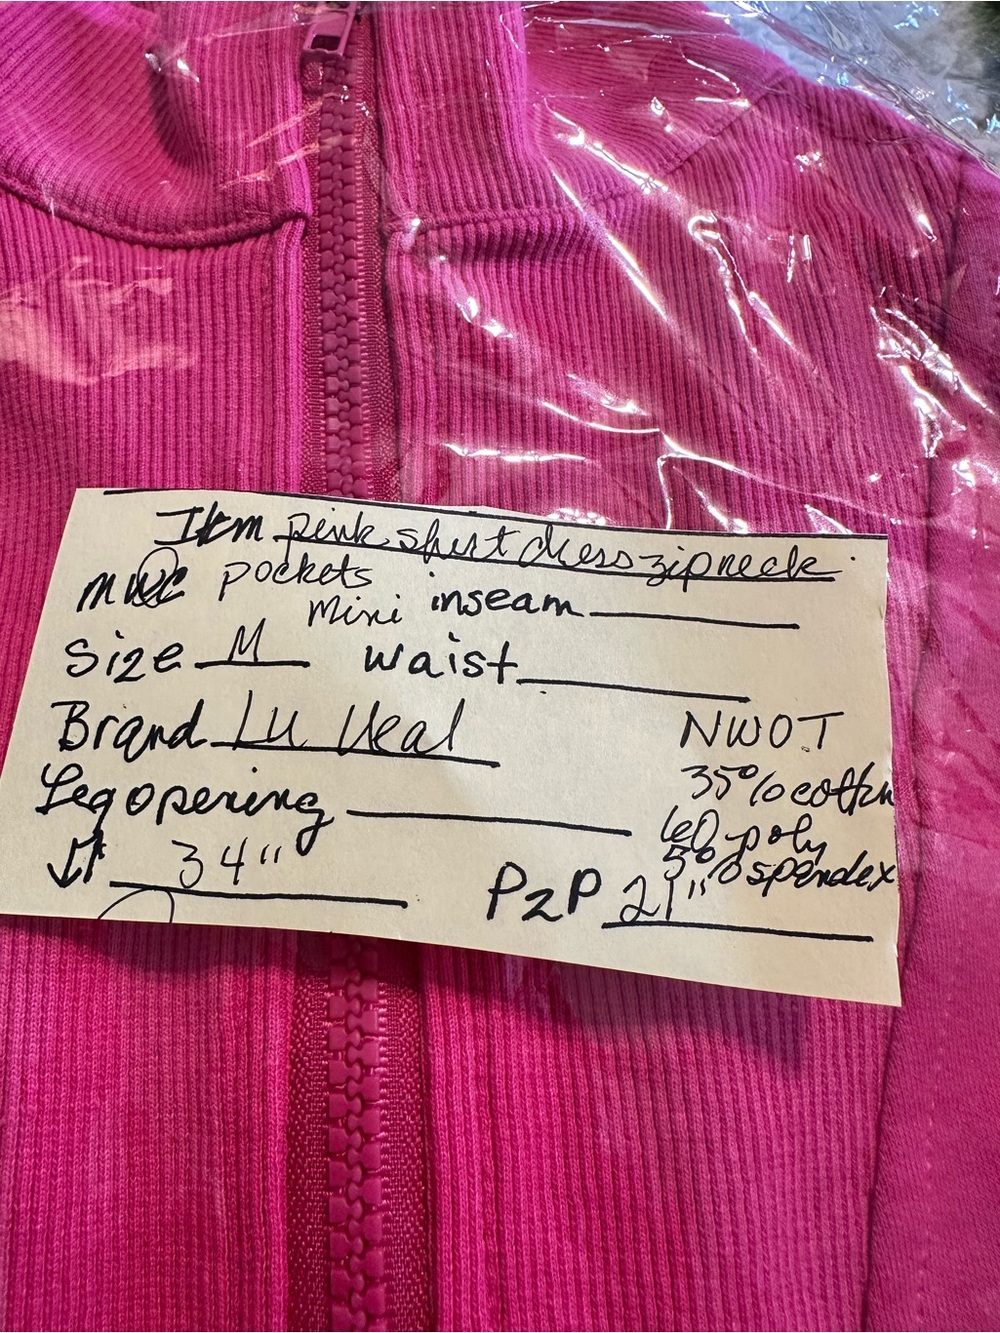 Item pink shirt dress zip neck
pockets
Mini inseam
Size M waist
Brand Lu Ueal NWOT
Leg opening 35% cotton
60 poly
5% spandex
34" P2P 21"